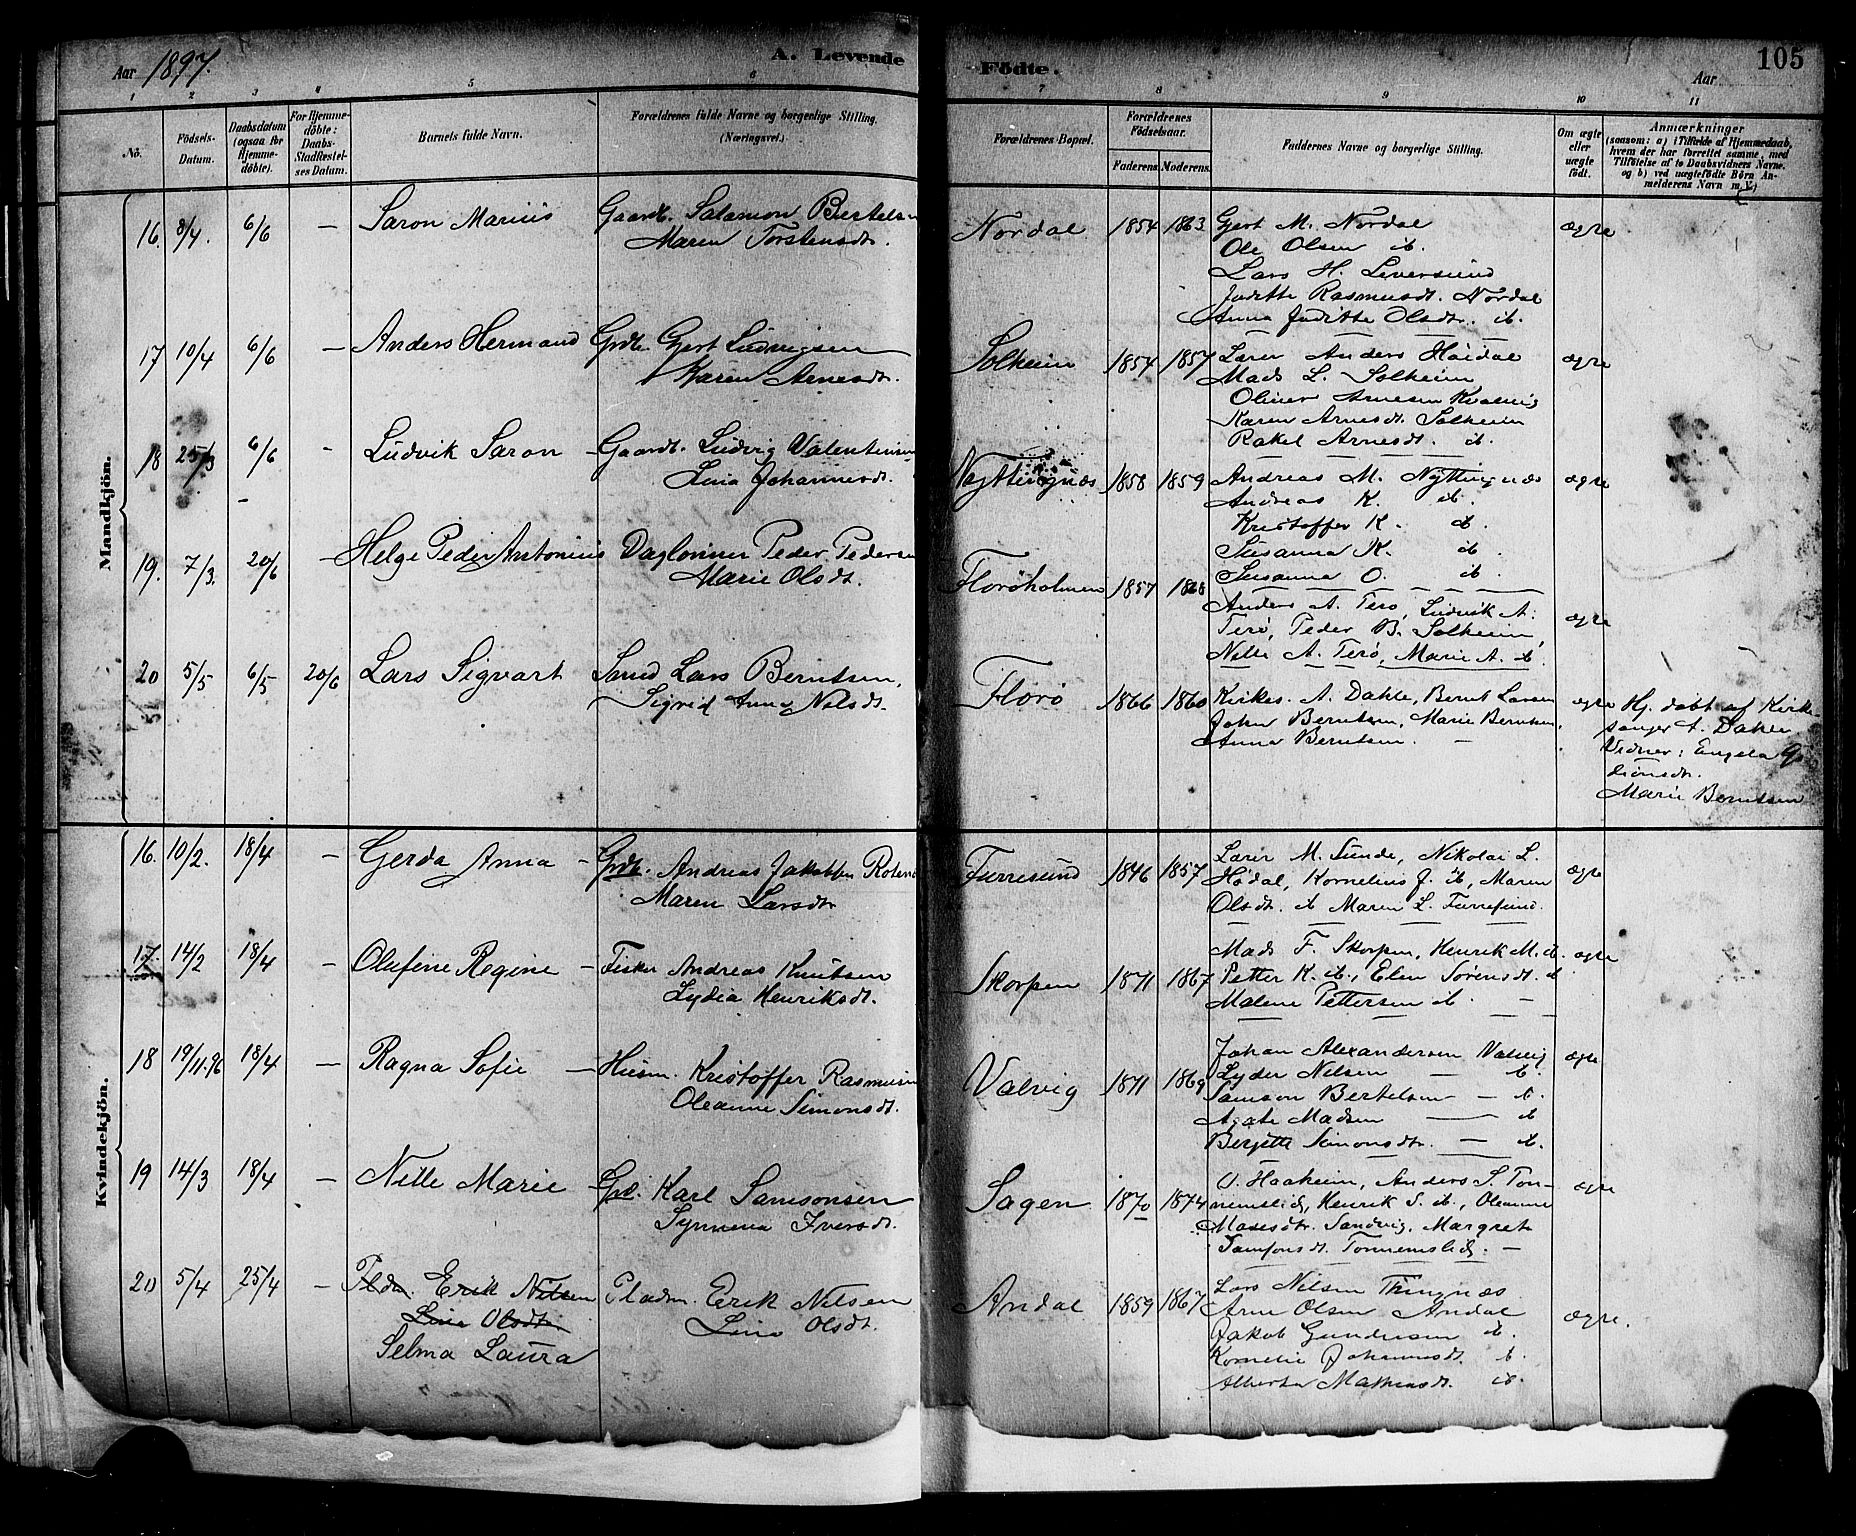 Aar 1897. A. Levende Födte. Aar 105
1 2 3 4 5 6 7 8 9 10 11
No. Födsels-Datum. Daabsdatum (ogsaa for Hjemme-döbte). For Hjemme-döbte: Daabs-Stadfæstel-ses Datum. Barnets fulde Navn. Forældrenes fulde Navne og borgerlige Stilling. (Næringsvei.) Forældrenes Bopæl. Forældrenes Födselsaar. Faderens. Moderens. Faddernes Navne og borgerlige Stilling. Om ægte eller uægte födt. Anmærkninger (saasom: a) i Tilfælde af Hjemmedaab, hvem der har forrettet samme, med Tilföielse af to Daabsvidners Navne. og b) ved uægtefödte Börn An-melderens Navn m. V.)
Mandkjön.
16. 8/4. 6/6 — Saron Marius Gaardb. Salamon Bertelsen
Maren Torstensdt.
Nordal 1854 1863 Gjert M. Nordal ægte
Ole Olsen ib.
Lars H. Leversund
Juditte Rasmusdt. Nordal
Anna Juditte Olsdt. ib.
17 10/4 6/6 — Anders Hermand Grdb. Gjert Ludvigsen
Karen Arnesdt.
Solheim 1854 1857 Lærer Anders Høidal ægte
Mads L. Solheim
Oliver Arnesen Kvalvig
Karen Arnesdt. Solheim
Rakel Arnesdt. ib.
18 25/3 6/6 - Ludvik Saron - Gaardb. Ludvig Valentinsen
Lina Johannesdt.
Nyttingnæs 1858 1859 Andreas M. Nyttingnæs ægte
Andreas K. ib.
Kristoffer K. ib.
Susanna K. ib.
Susanna O. ib.
19. 7/3. 20/6 — Helge Peder Antonius Daglønner Peder Pedersen
Marie Olsdt.
Florøholmen 1857 1868 Anders A. Terø, Ludvik A.
Terø, Peder B. Solheim, ægte
Nille A. Terø, Marie A. ib.
20 5/5 6/5 20/6 Lars Sigvart Smed Lars Berntsen,
Sigrid Anna Nilsdt.
Florø 1866 1860 Kirkes. A. Dahle, Bernt Larsen ægte Hj. døbt af Kirke-
John Berntsen, Marie Berntsen sanger A. Dahle
Anna Berntsen. — Vidner: Engela
Marie Berntsen
Kvindekjön.
16. 10/2. 18/4 — Gerda Anna - Grdb. Andreas Jakobsen
Maren Larsdtr
Furresund 1846 1857 Lærer M. Sunde, Nikolai L. ægte
Hødal, Kornelius J. ib, Maren
Olsdt. ib Maren L. Furresund.
17. 14/2 18/4 — Olufine Regine — Fisker Andreas Knutsen
Lydia Henriksdt.
Skorpen 1871 1867 Mads F. Skorpen, Henrik M. ib ægte
Petter K. ib., Elen Sørensdt. ib
Malene Pettersen ib. —
18 19/11.96 18/4 — Ragna Sofie — Husm. Kristoffer Rasmusen
Oleanne Simonsdt.
Valvig 1871 1869 Johan Alexandersen Valvig ægte
Lyder Nilsen — ib.
Samson Bertelsen — ib.
Agate Madsen — ib
Berjitte Simonsdtr. — ib.
19 14/3 18/4 — Nille Marie — Karl Samsonsen
Synneva Iversdt.
Sagen 1870 1874 O. Haaheim, Anders S. Ton-
nemslid, Henrik S. ib., Oleanne ægte
Madesdtr. Sandvig, Margrete
Samsonsdt. Tonnemslid. —
20 5/4 25/4 — Pldm. Erik Nilsen Pladm. Erik Nilsen
Lina Olsdtr. Lina Olsdt.
Selma Laura
Andal 1859 1867 Lars Nilsen Tingnæs
Arne Olsen Andal ægte.
Jakob Gundersen ib.
Kornelie Johannesdt. ib.
Alberta Mathiasdt. ib.